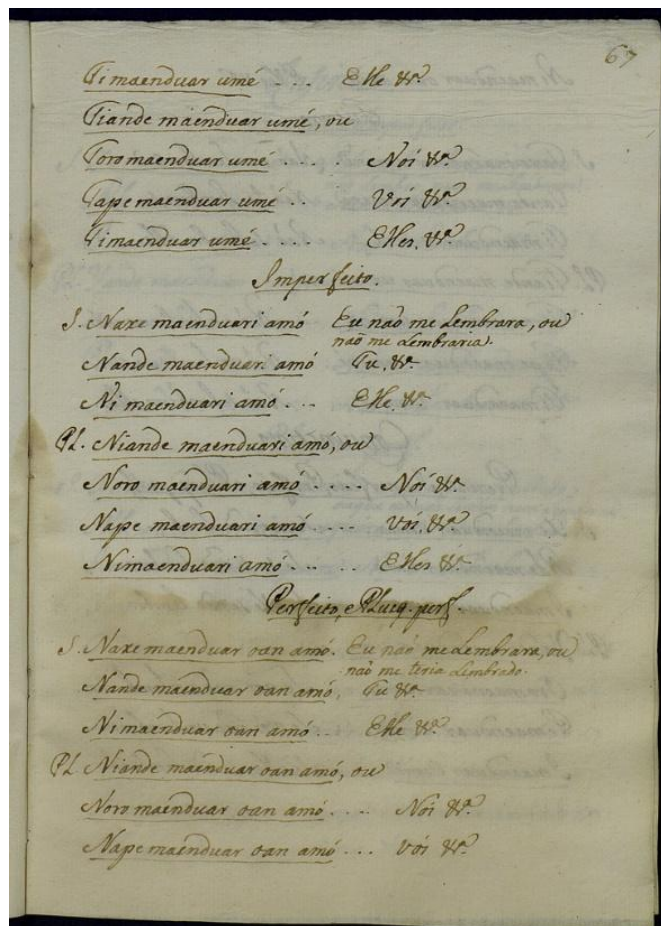 67
Timaenduar umé .... Elle &ª
Tiande maenduar umé, ou
Toro maenduar umé .... Nói &ª
Tape maenduar umé .. Vói &ª
Timaenduar umé .... Elles, &ª
Imperfeito.
S. Naxe maenduari amó Eu naõ me Lembrara, ou
naõ me Lembraria.
Nande maenduari amó Tu, &ª
Ni maenduari amó ... Elle, &ª
Pl. Niande maenduari amó, ou
Noro maenduari amó .... Nói &ª
Nape maenduari amó ... vói, &ª
Nimaenduari amó ..... Elles &ª
Perfeito, e Plusq. perf.
S. Naxe maenduar oan amó. Eu naõ me Lembrara, ou
naõ me teria Lembrado.
Nande maenduar oan amó, Tu &ª
Nimaenduar oan amó .. Elle &ª
Pl. Niande maenduar oan amó, ou
Noro maenduar oan amó .... Nói &ª
Nape maenduar oan amó .... vói &ª